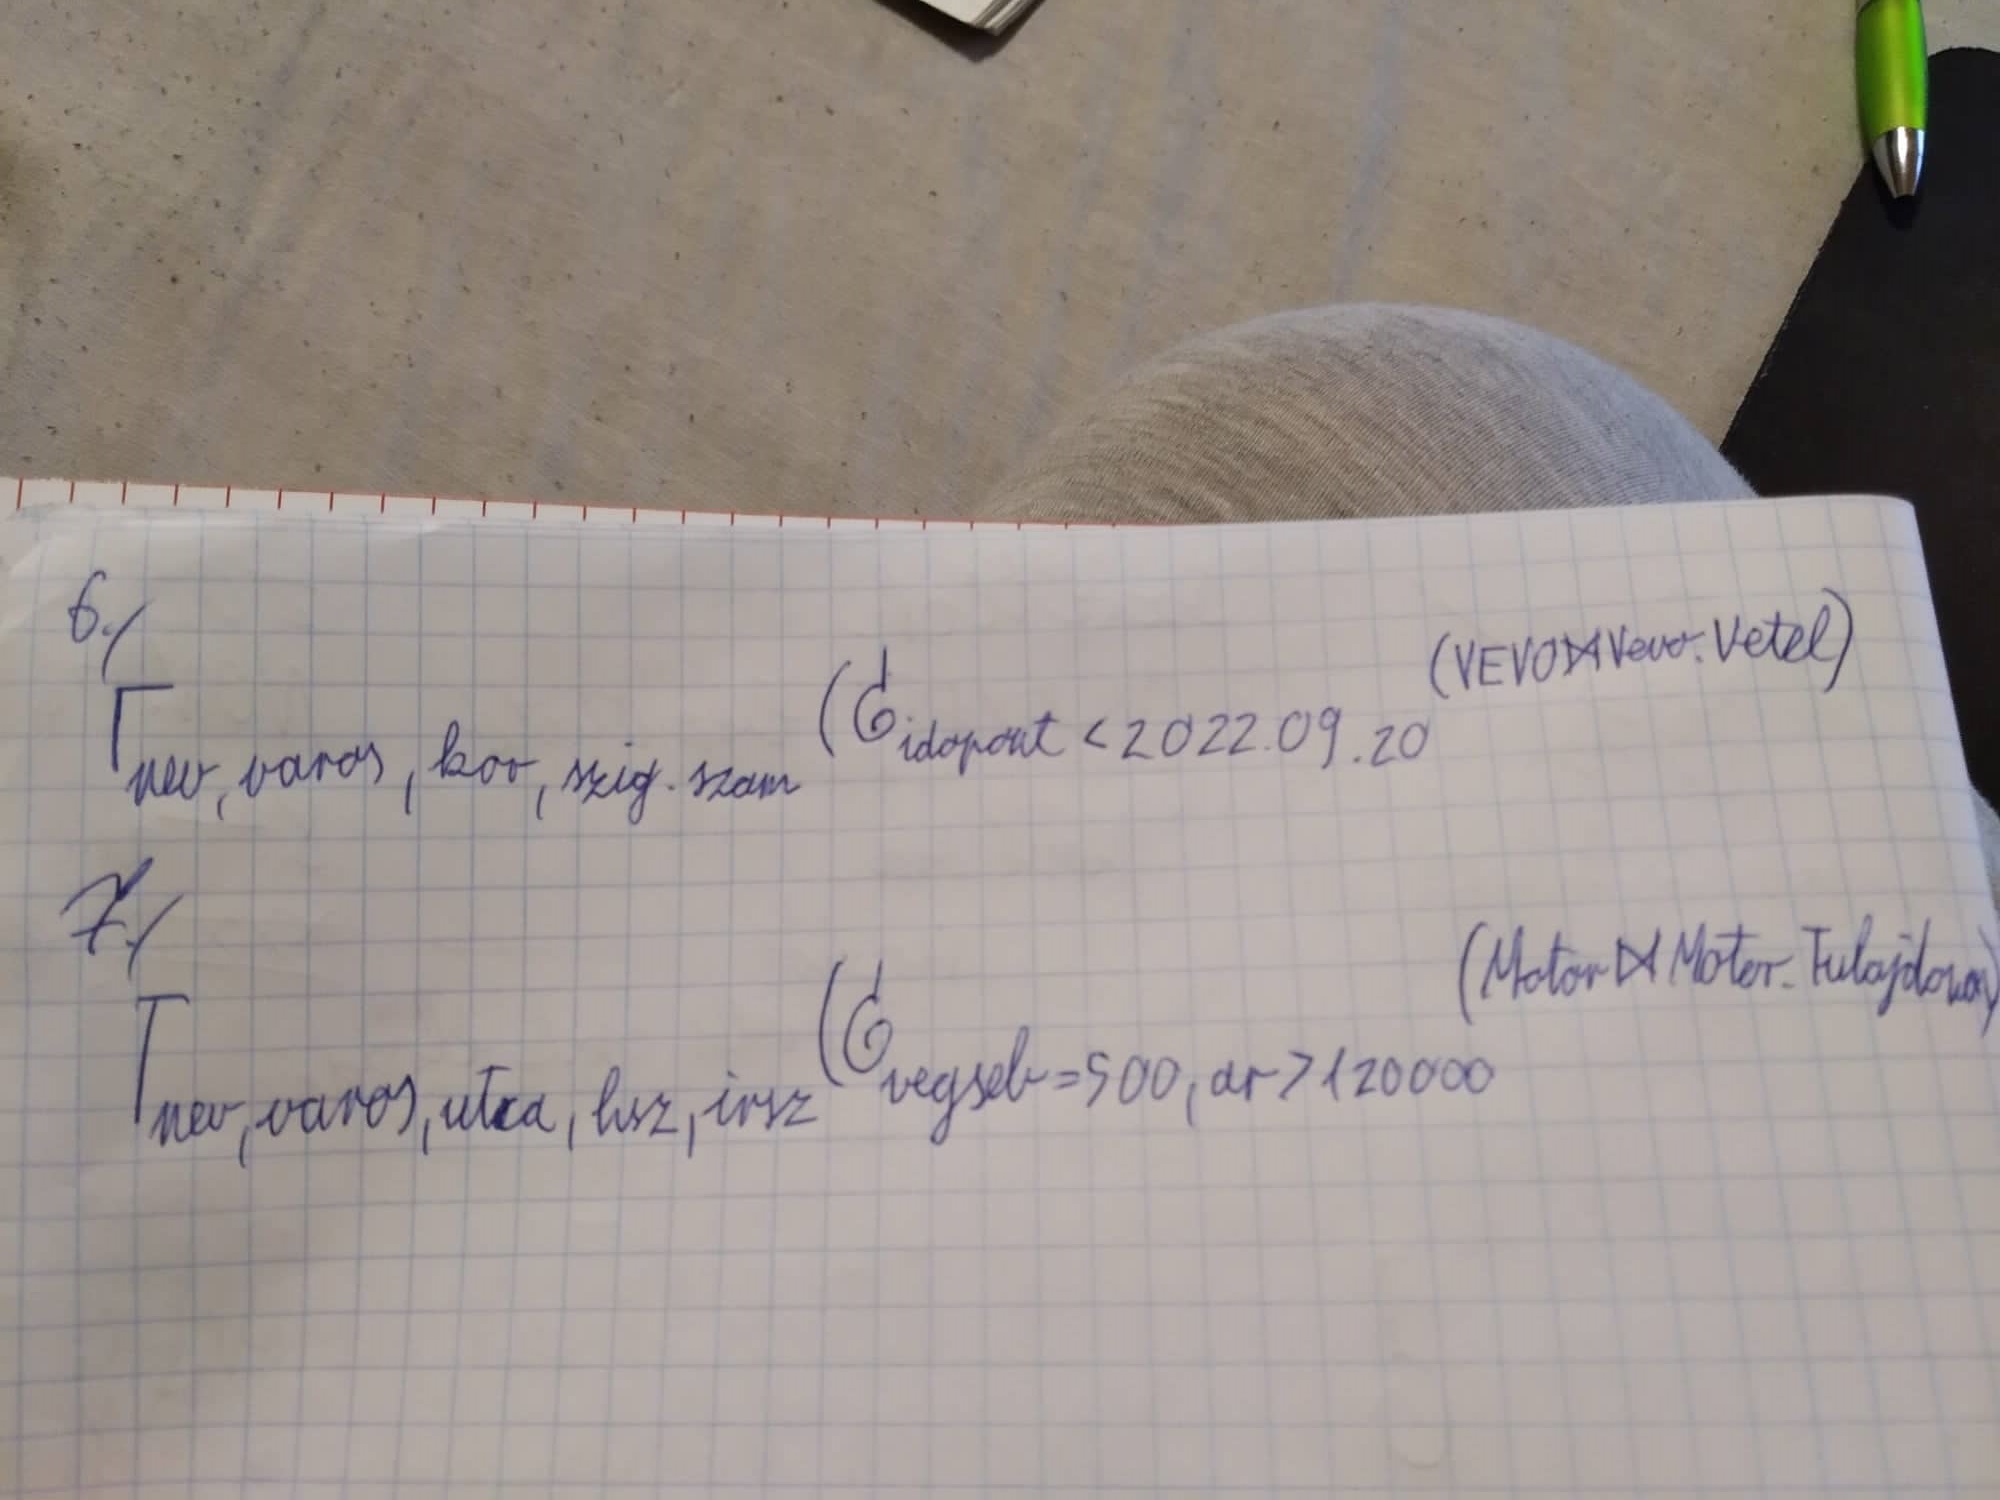 6./
Γ nev, varos, kor, szig. szam (σ idopont < 2022.09.20 (VEVO⋈Vevo.Vetel)
7./
Γ nev, varos, utca, hsz, irsz (σ vegseb=500, ar>120000 (Motor⋈Motor.Tulajdonos)